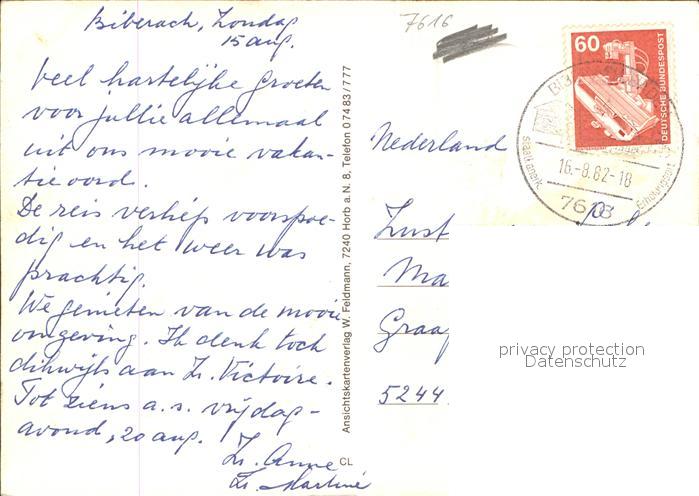 Biberach, Zondag
15 aug.
Veel hartelijke groeten
voor jullie allemaal
uit ons mooie vakan-
tieoord.
De reis verliep voorspoe-
dig en het weer was
prachtig.
We genieten van de mooie
omgeving. Ik denk toch
dikwijls aan Zr. Victoire.
Tot ziens a.s. vrijdag-
avond, 20 aug.
Zr. Anne
Zr. Martiné
CL
Ansichtskartenverlag W. Feldmann, 7240 Horb a. N. 8, Telefon 0 74 83/7 77
7616
60
DEUTSCHE BUNDESPOST
staatl. anerk. Erholungsort
16.-8.82-18
7616
Nederland
Zust
Ma
Graa
5244
privacy protection
Datenschutz